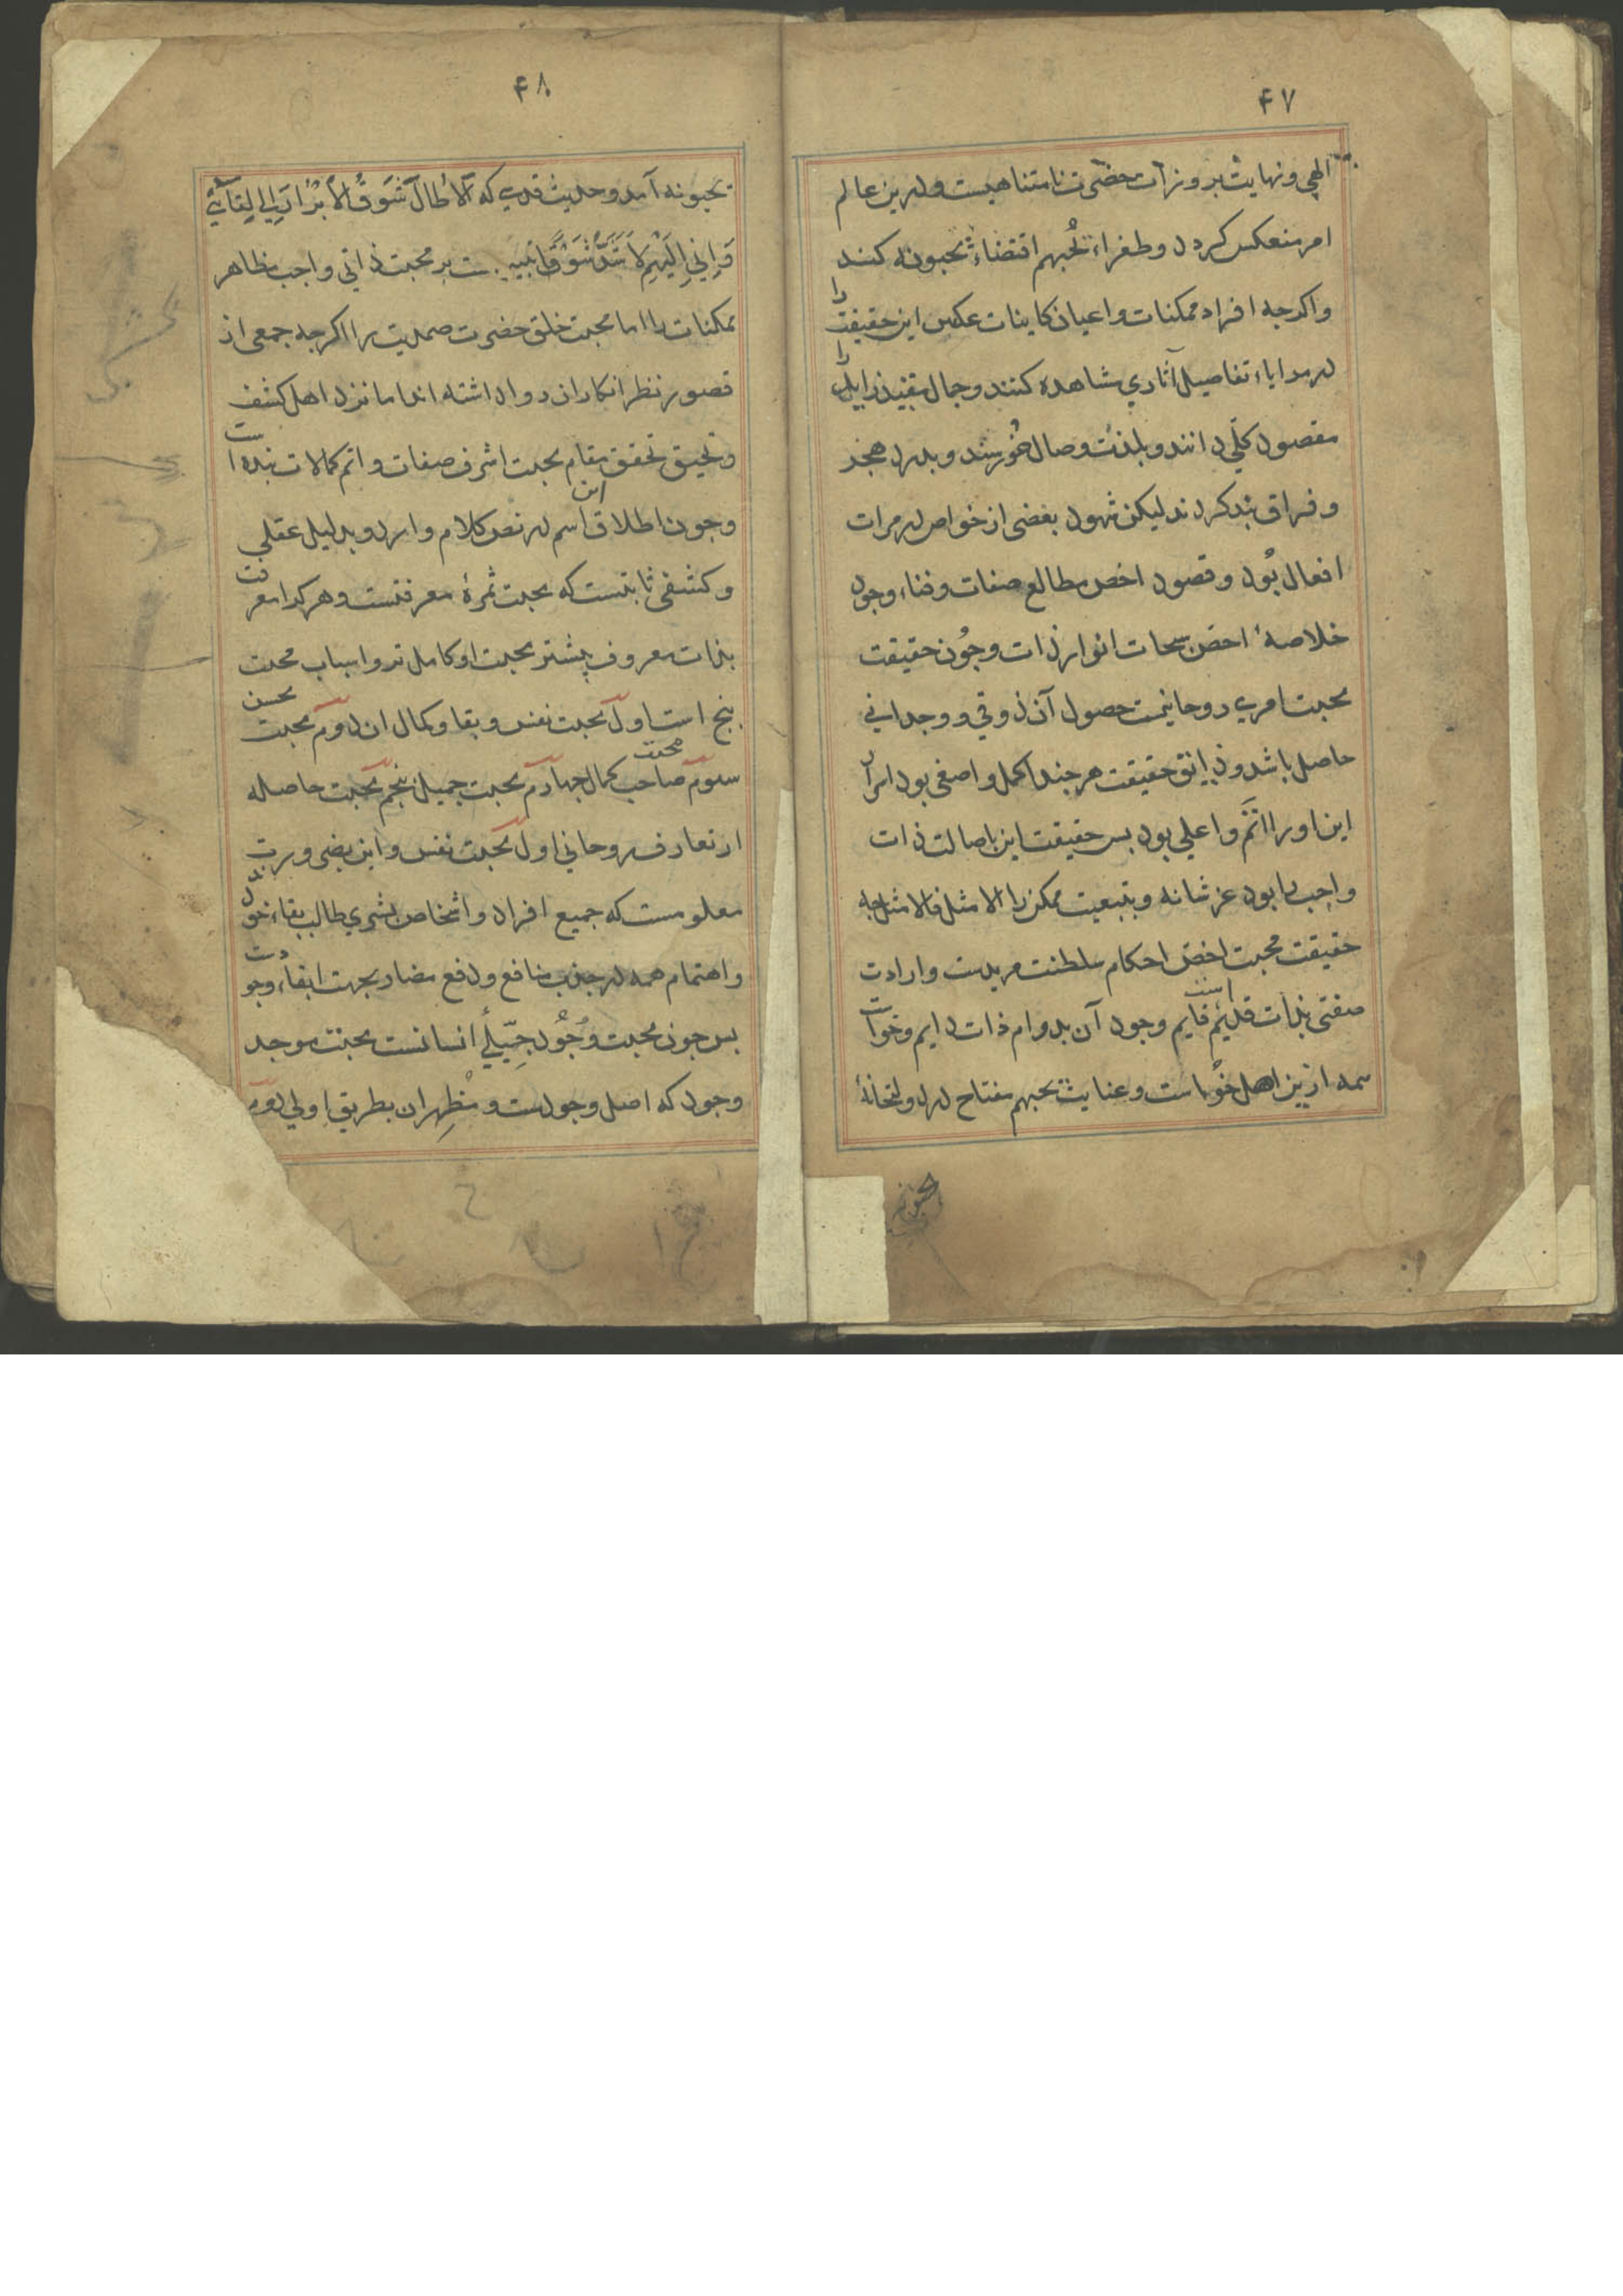 ۴۷
الهی و نهایت بروزات حضرت نامتناهیست و درین عالم
امر منعکس کردد و طغراء یُحبهم اقتضاءِ یحبونه کند
واکرجه افراد ممکنات و اعیان کاینات عکس این حقیقت را
در مرایاء تفاصیل آثاری مشاهده کنند و جمال مقید زایل را
مقصود کلّی دانند و بلذت وصال خُورسند و بدرد هجر
و فراق بند کردند لیکن شهود بعضی از خواص در مرات
افعال بُود و قصود اخص مطالع صفات و فناء وجود
خلاصهٔ اخص سبحات انوار ذات و جُون حقیقت
محبت امری روحانیست حصول آن ذوقی و وجدانی
حاصل باشد و ذایق حقیقت هرجند اکمل و اصفی بود اسرار
این او را اتمّ و اعلی بود بس حقیقت این باصالت ذات
واجب را بود عز شانه و بتبعیت ممکن را الامثل فالامثل جه
حقیقت محبت اخص احکام سلطنت مریدست و ارادت
صفتی بذات قدیم قایم است وجود آن بدوام ذات دایم و خواست
همه ازین اصل خُواست و عنایت یحبهم مفتاح در دولتخانهٔ
یحبونه
۴۸
یحبونه آمد و حدیث قدسی که اَلاٰ طالَ شَوقُ الاَبْرَارِ اِلٰی لِقَآئِی
وَاِنِّی اِلَیْهِمْ لَاَشَدُّ شَوْقًا تنبیه ست بر محبت ذاتی واجب مظاهر
ممکنات را اما محبت خلق حضرت صمدیت را اکرجه جمعی از
قصور نظر انکار ان روا داشته اند اما نزد اهل کشف
و تحیق تحقق مقام محبت اشرف صفات و اتم کمالات بنده است
و جون اطلاق این اسم در نص کلام وارد و بدلیل عقلی
و کشفی ثابتست که محبت ثمرهٔ معرفتست و هر کرا معرفت
بذات معروف بیشتر محبت او کامل تر و اسباب محبت
بنج است اول محبت نفس و بقا و کمال ان دوم محبت محسن
سوم محبت صاحب کمال جهارم محبت جمیل بنجم محبت حاصله
از تعارف روحانی اول محبت نفس و این بضرورت
معلومست که جمیع افراد و اشخاص بشری طالب بقاء خود اند
و اهتمام همه در جذب منافع و دفع مضار بجهت ابقاء وجودست
بس جون محبت وُجُود جبلّیٔ انسانست محبت موجد
وجود که اصل وجودست و مُظهِر ان بطریق اولی دوم